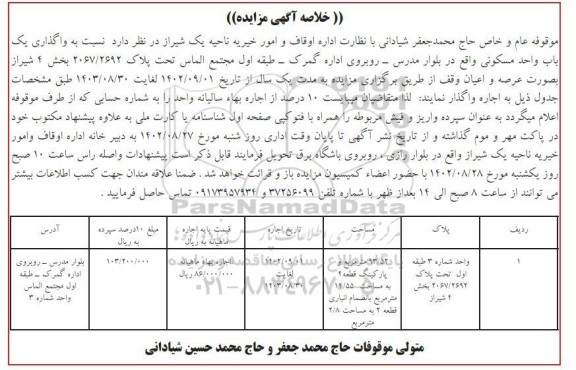 (( خلاصه آگهی مزایده))
موقوفه عام و خاص حاج محمدجعفر شیادانی با نظارت اداره اوقاف و امور خیریه ناحیه یک شیراز در نظر دارد نسبت به واگذاری یک
باب واحد مسکونی واقع در بلوار مدرس ـ روبروی اداره گمرک ـ طبقه اول مجتمع الماس تحت پلاک ۲۰۶۷/۲۶۹۲ بخش ۴ شیراز
بصورت عرصه و اعیان وقف از طریق برگزاری مزایده به مدت یک سال از تاریخ ۱۴۰۲/۰۹/۰۱ لغایت ۱۴۰۳/۰۸/۳۰ طبق مشخصات
جدول ذیل به اجاره واگذار نمایند: لذا متقاضیان میبایست ۱۰ درصد از اجاره بهاء سالیانه واحد را به شماره حسابی که از طرف موقوفه
اعلام میگردد به عنوان سپرده واریز و فیش مربوطه را همراه با فتوکپی صفحه اول شناسنامه یا کارت ملی به علاوه پیشنهاد مکتوب خود
در پاکت مهر و موم گذاشته و از تاریخ نشر آگهی تا پایان وقت اداری روز شنبه مورخ ۱۴۰۲/۰۸/۲۷ به دبیر خانه اداره اوقاف وامور
خیریه ناحیه یک شیراز واقع در بلوار رازی ، روبروی باشگاه برق تحویل فرمایند قابل ذکر است پیشنهادات واصله راس ساعت ۱۰ صبح
روز یکشنبه مورخ ۱۴۰۲/۰۸/۲۸ با حضور اعضاء کمیسیون مزایده باز و قرائت خواهد شد . ضمنا علاقه مندان جهت کسب اطلاعات بیشتر
می توانند از ساعت ۸ صبح الی ۱۴ بعداز ظهر با شماره تلفن ۳۷۲۵۶۰۹۹ و ۰۹۱۷۳۹۵۷۹۳۴ تماس حاصل فرمایید .
ParsNamadData
ردیف پلاک مساحت تاریخ اجاره قیمت پایه اجاره ماهیانه به ریال مبلغ ۱۰درصد سپرده به ریال آدرس
۱ واحد شماره ۳ طبقه اول تحت پلاک ۲۰۶۷/۲۶۹۲ بخش ۴ شیراز
مترمربع و پارکینگ قطعه ۲ به مساحت ۱۴/۵۵ مترمربع بانضمام انباری قطعه ۲ به مساحت ۲/۸ مترمربع
۱۴۰۲/۰۹/۰۱ لغایت ۱۴۰۳/۰۸/۳۰
اجاره بهاء ماهیانه ۸۶/۰۰۰/۰۰۰ ریال
۱۰۳/۲۰۰/۰۰۰
بلوار مدرس ـ روبروی اداره گمرک ـ طبقه اول مجتمع الماس واحد شماره ۳
۰۲۱-۸۸۳۴۹۶۷۰
متولی موقوفات حاج محمد جعفر و حاج محمد حسین شیادانی